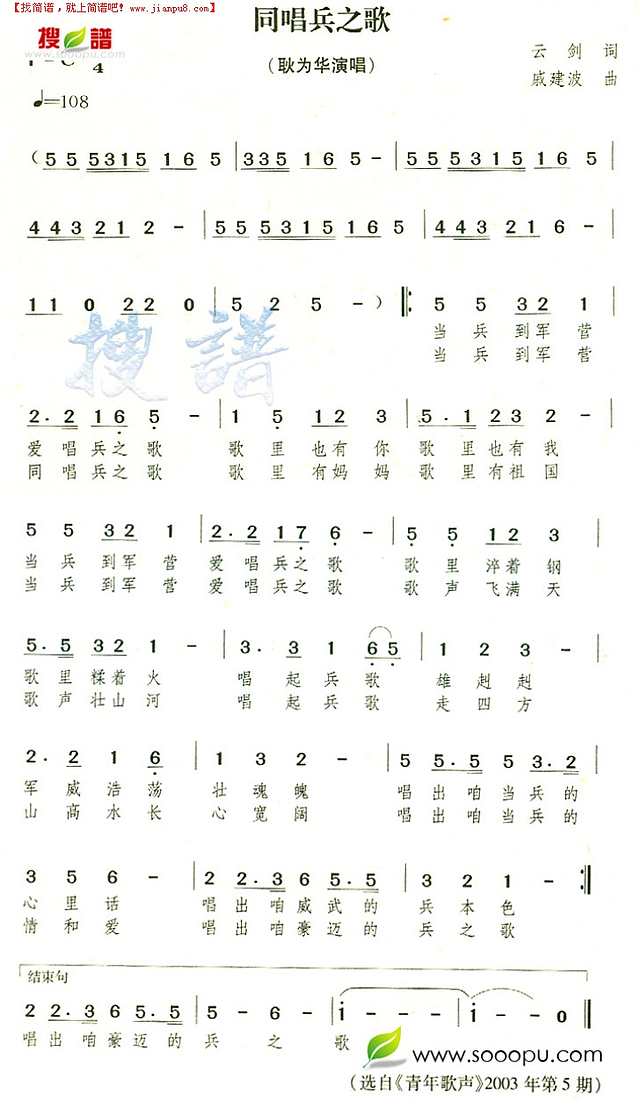 【找简谱，就上简谱吧! www.jianpu8.com】
搜谱
www.sooopu.com
同唱兵之歌
(耿为华演唱)
云剑 词
戚建波 曲
4
♩=108
(5 5 5 3 1 5 1 6 5 | 3 3 5 1 6 5 - | 5 5 5 3 1 5 1 6 5
4 4 3 2 1 2 - | 5 5 5 3 1 5 1 6 5 | 4 4 3 2 1 6 - |
1 1 0 2 2 0 | 5 2 5 - ) ‖: 5 5 3 2 1 |
当兵到军营
当兵到军营
搜谱
2. 2 1 6 5 - | 1 5 1 2 3 | 5. 1 2 3 2 - |
爱唱兵之歌 歌里也有你 歌里也有我
同唱兵之歌 歌里有妈妈 歌里有祖国
5 5 3 2 1 | 2. 2 1 7 6 - | 5 5 1 2 3 |
当兵到军营 爱唱兵之歌 歌里淬着钢
当兵到军营 爱唱兵之歌 歌声飞满天
5. 5 3 2 1 - | 3. 3 1 6 5 | 1 2 3 - |
歌里糅着火 唱起兵歌 雄赳赳
歌声壮山河 唱起兵歌 走四方
2. 2 1 6 | 1 3 2 - | 5. 5 5 5 3. 2 |
军威浩荡 壮魂魄 唱出咱当兵的
山高水长 心宽阔 唱出咱当兵的
3 5 6 - | 2 2. 3 6 5. 5 | 3 2 1 - :‖
心里话 唱出咱威武的 兵本色
情和爱 唱出咱豪迈的 兵之歌
结束句
2 2. 3 6 5. 5 | 5 - 6 - | i - - - | i - 0 ‖
唱出咱豪迈的 兵之歌
www.sooopu.com
(选自《青年歌声》2003年第5期)